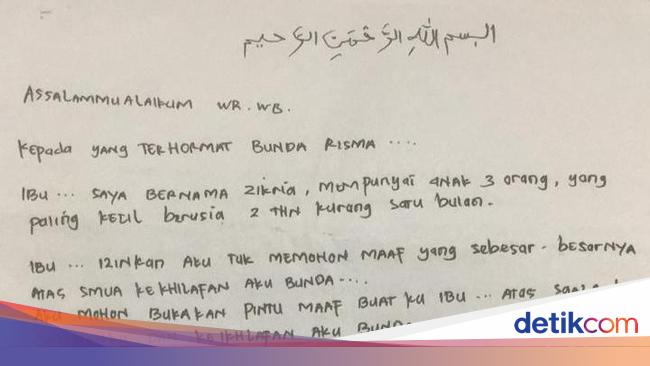 البسم الله الرحمن الرحيم
ASSALAMMUALAIKUM WR. WB.
Kepada YANG TERHORMAT BUNDA RISMA ....
IBU ... SAYA BERNAMA ZIKRIA, MEMPUNYAI ANAK 3 orang, yang
paling KECIL berusia 2 THN kurang satu bulan.
IBU ... IZINKAN AKU TUK MEMOHON MAAF yang sebesar-besarnya
ATAS SMUA KEKHILAFAN AKU BUNDA....
AKU MOHON BUKAKAN PINTU MAAF BUAT KU IBU ... ATAS
KEKHILAFAN AKU
detikcom